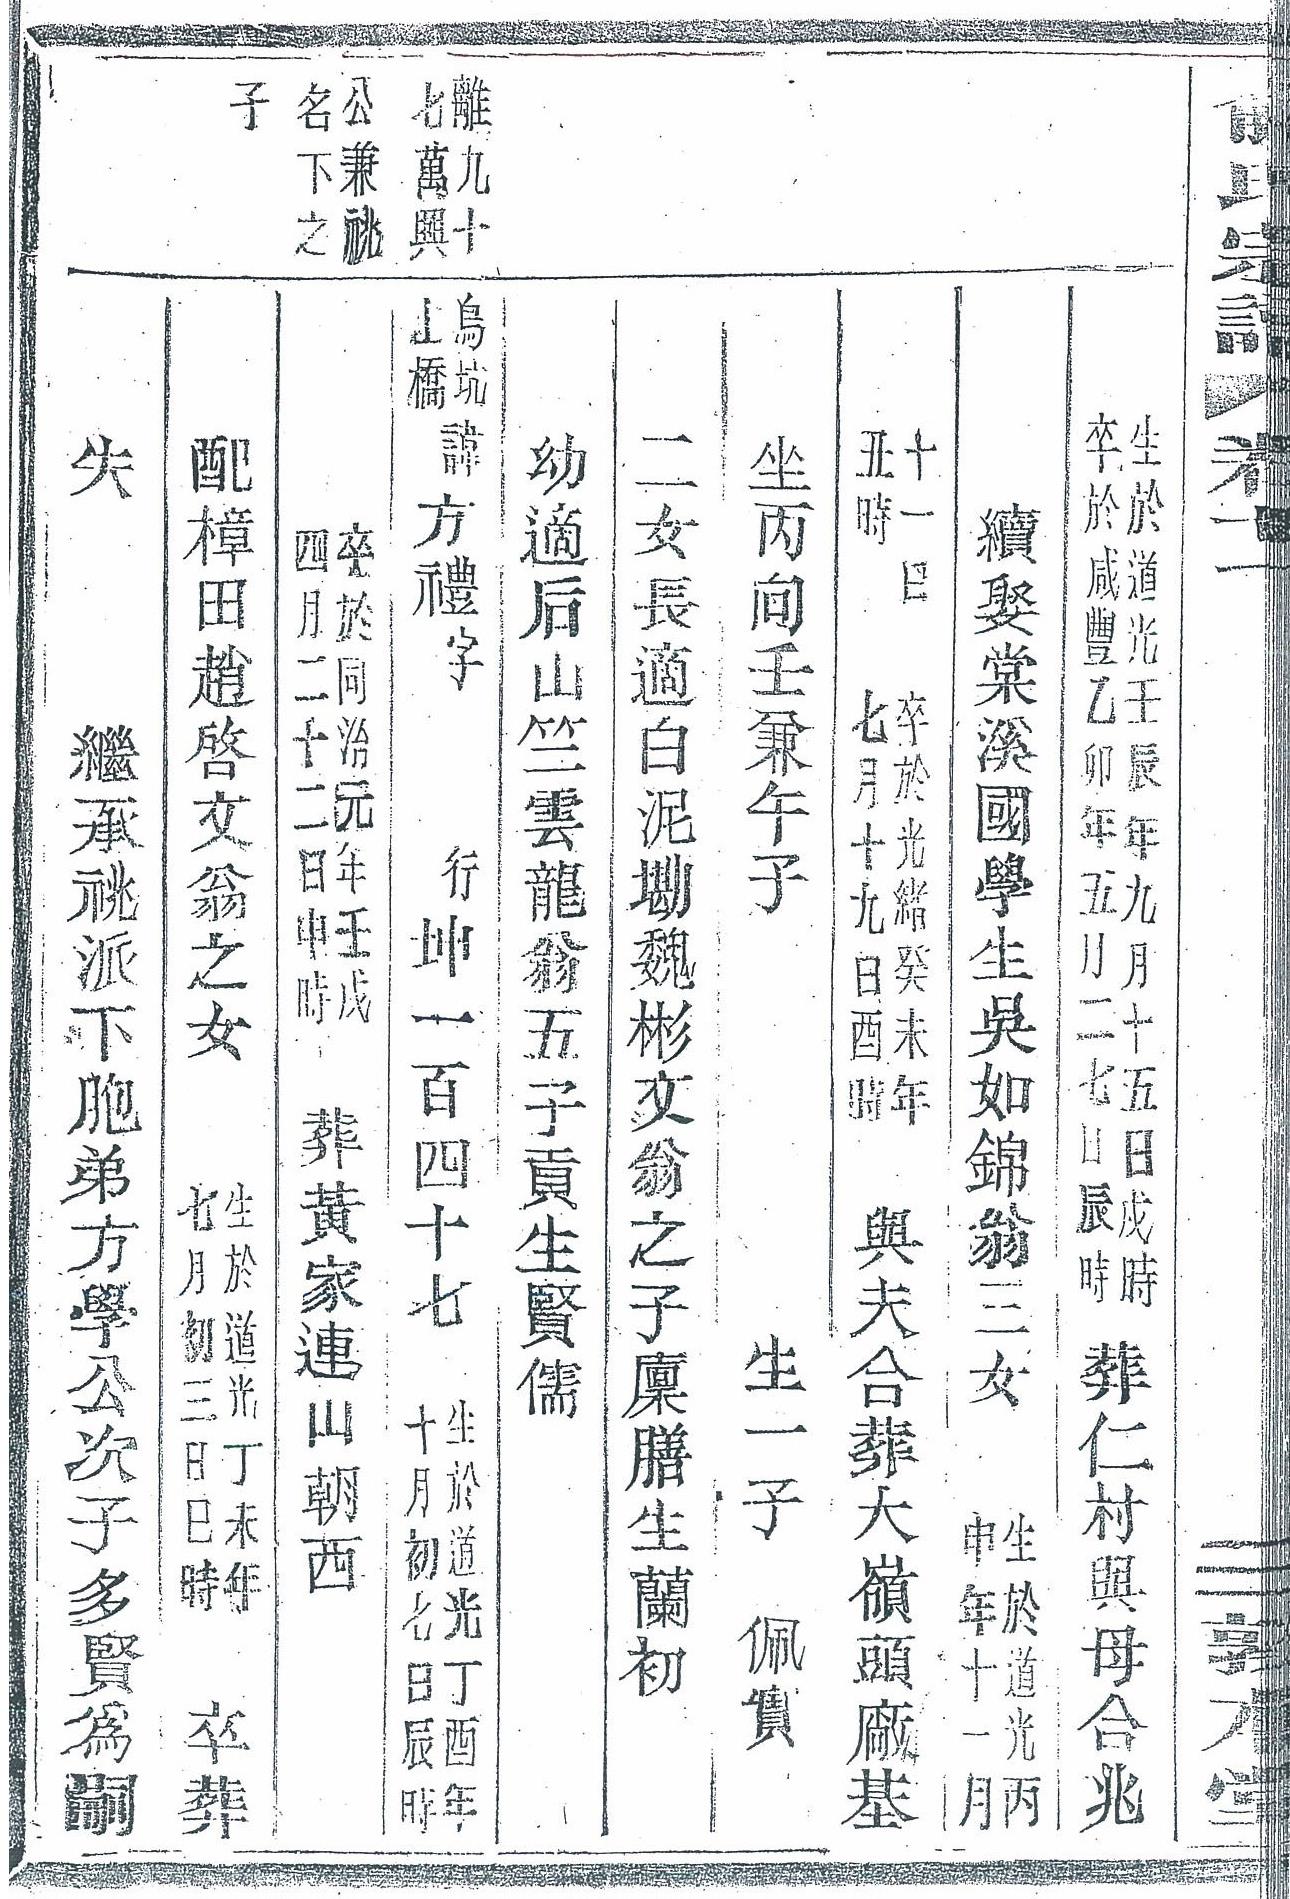 氏宗譜 卷一 敦本堂
生於道光壬辰年九月十五日戌時
卒於咸豐乙卯年五月二七日辰時
葬仁村與母合兆
續娶棠溪國學生吳如錦翁三女
生於道光丙
申年十一月
十一日
丑時
卒於光緒癸未年
七月十九日酉時
與夫合葬大嶺頭廠基
坐丙向壬兼午子 生一子 佩實
二女長適白泥墈魏彬文翁之子廩膳生蘭初
幼適后山竺雲龍翁五子貢生賢儒
離九十
七萬興
公兼祧
名下之
子
烏坑
上橋
諱方禮字 行坤一百四十七
生於道光丁酉年
十月初七日辰時
卒於同治元年壬戌
四月二十二日申時
葬黃家連山朝西
配樟田趙啓文翁之女
生於道光丁未年
七月初三日巳時
卒葬
失 繼承祧派下胞弟方學公次子多賢為嗣